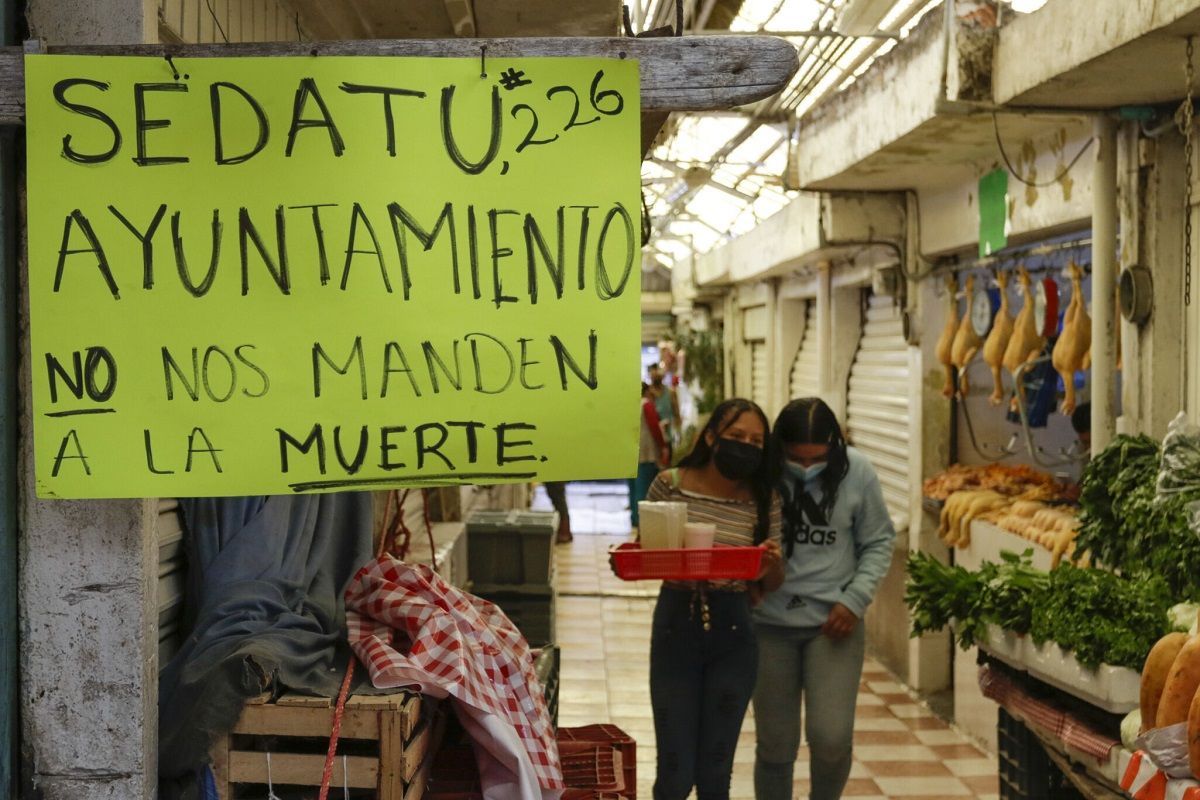 SEDATU, #226
AYUNTAMIENTO
NO NOS MANDEN
A LA MUERTE.
adidas